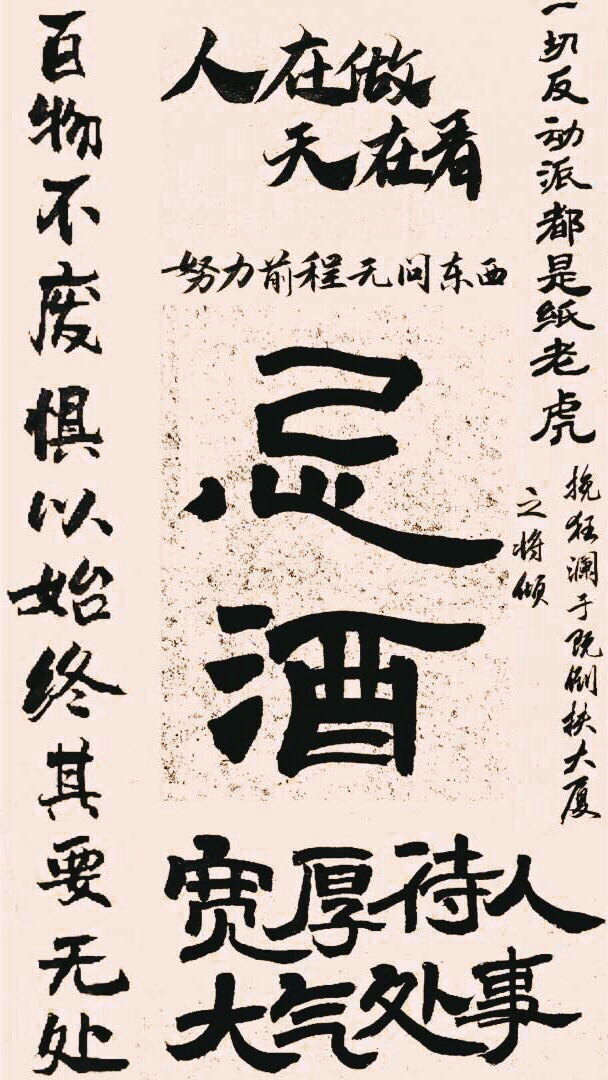 一切反动派都是纸老虎
挽狂澜于既倒扶大厦
之将倾
人在做
天在看
努力前程无问东西
忌酒
宽厚待人
大气处事
百物不废惧以始终其要无处